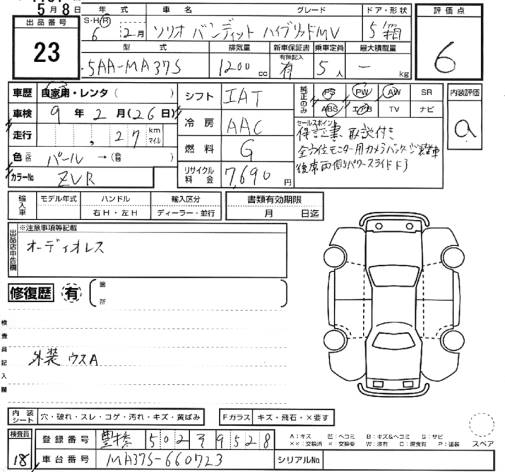 5月8日
出品番号
23
年式 車名 グレード ドア・形状
S・H・R 6年2月 ソリオ バンディット ハイブリッドMV 5/箱
型式 排気量 新車保証書 乗車定員 最大積載量
5AA-MA37S 1200cc 有 5人 ー kg
評価点
6
車歴 自家用・レンタ( )
車検 9年2月(26日)
走行 , 27 km マイル
色 パール→( 色)
カラーNo ZVR
シフト IAT
冷房 AAC
燃料 G
リサイクル料金 7,690
純正のみ PS PW AW SR
ABS エアB TV ナビ
セールスポイント
保証書 取説付き
全方位モニター用カメラパッケージ装着車
後席両側パワースライドドア
内装評価
a
輸入車 モデル年式 ハンドル 輸入区分
右H・左H ディーラー・並行
書類有効期限
月 日迄
出品店申告欄
※注意事項等記載
オーディオレス
修復歴 有 箇所
検査員記入欄
外装 ウスA
内装シート 穴・破れ・スレ・コゲ・汚れ・キズ・黄ばみ
Fガラス キズ・飛石・×要す
検査員
18
登録番号 豊橋 502 そ 9528
車台番号 MA37S-660723
シリアルNo
A:キズ E:エクボ B:キズ&ヘコミ U:ヘコミ S:サビ
スペア